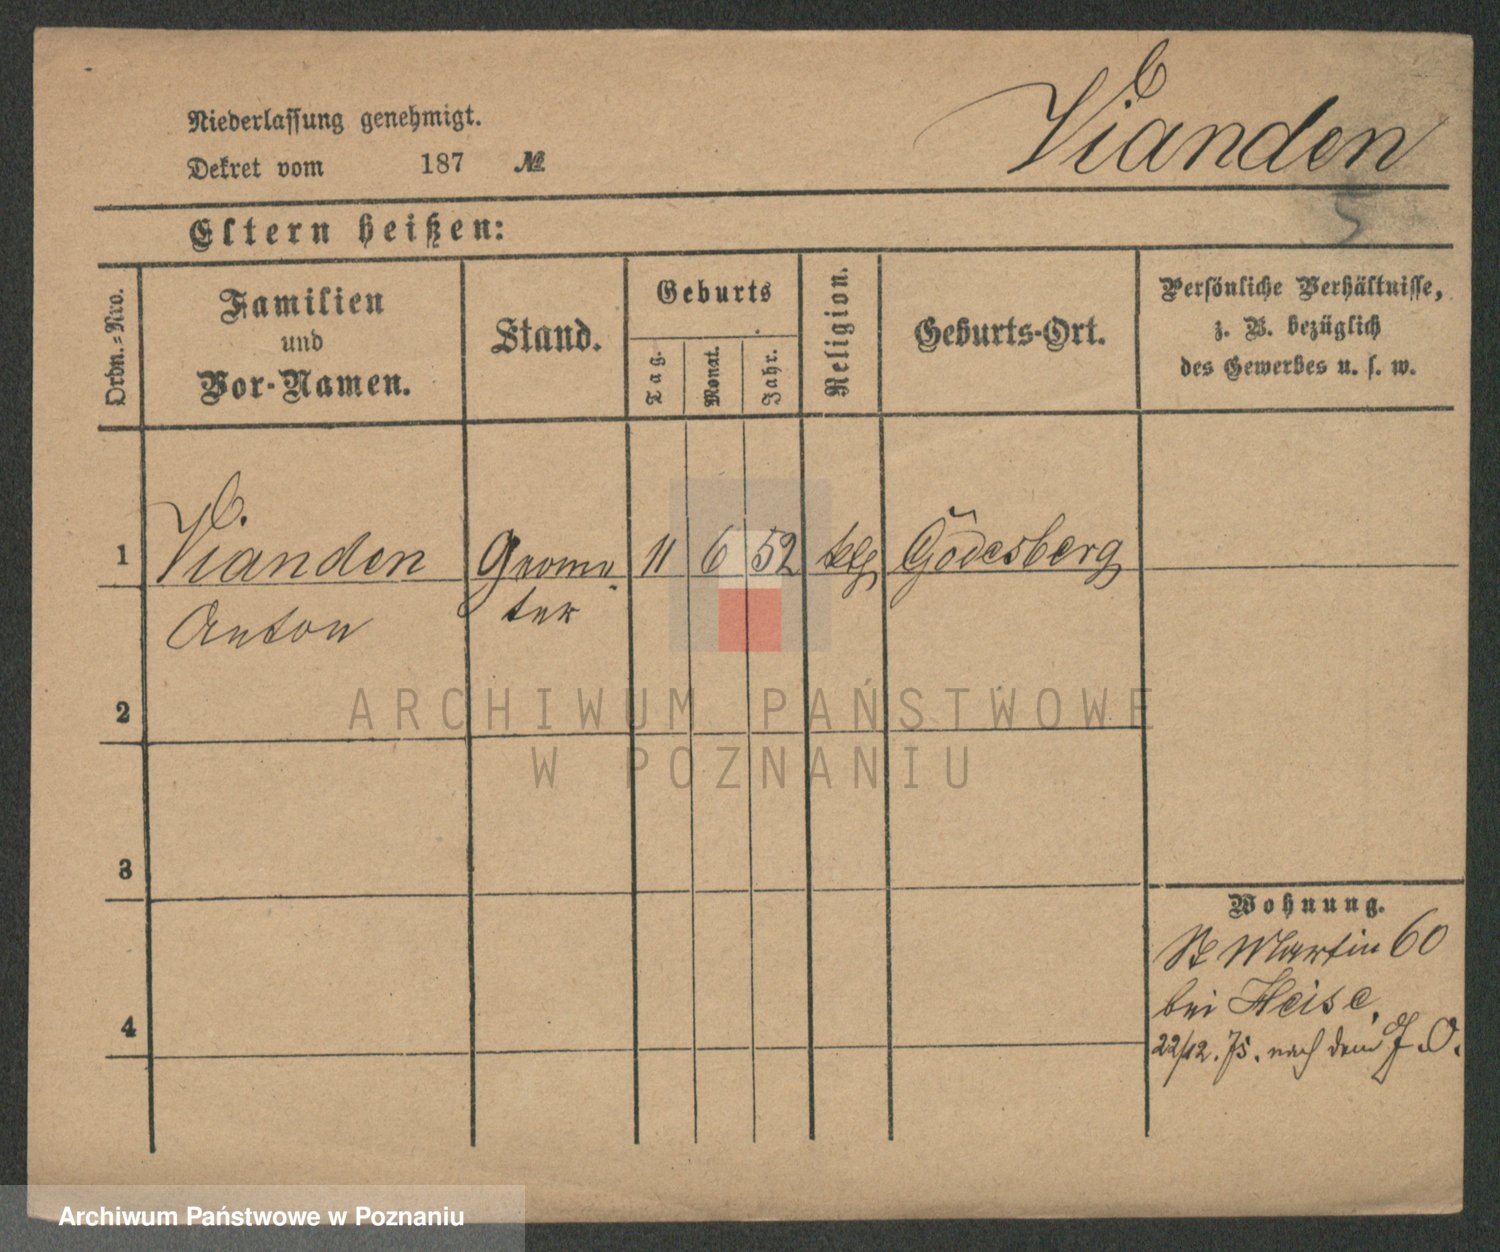 Vianden
Niederlassung genehmigt.
Dekret vom 187 №
5
Eltern heißen:
Ordn.=Nro.
Familien
und
Vor-Namen.
Stand.
Geburts
Tag.
Monat.
Jahr.
Religion.
Geburts-Ort.
Persönliche Verhältnisse,
z. B. bezüglich
des Gewerbes u. s. w.
1
Vianden
Anton
Geome
ter
11
6
52
ktg
Godesberg
2
3
4
Wohnung.
St Martin 60
bei Heise.
22/12. 75. nach dem
ARCHIWUM PAŃSTWOWE
W POZNANIU
Archiwum Państwowe w Poznaniu